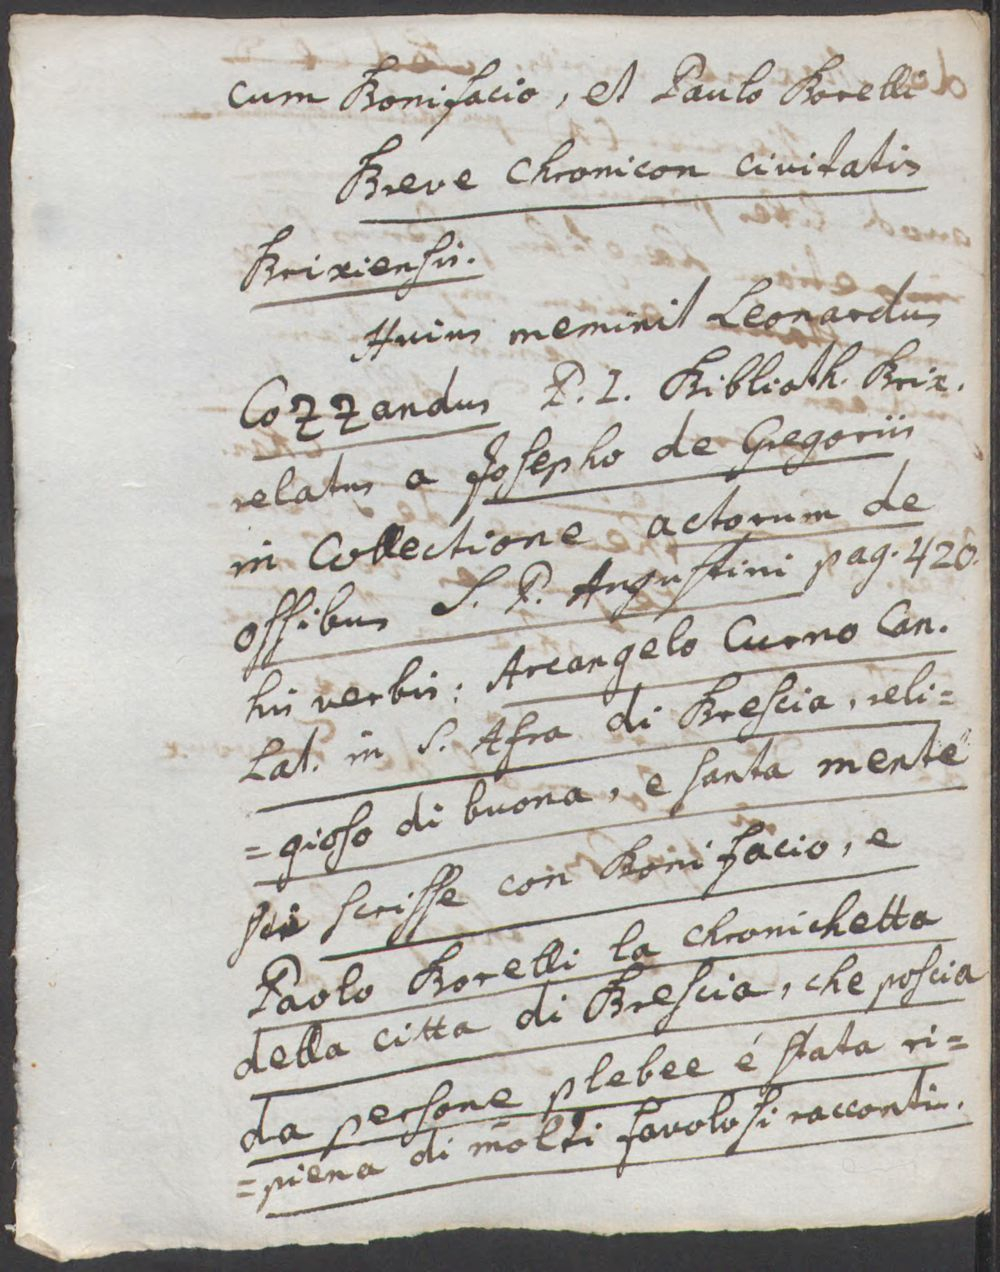 cum Bonifacio, et Paulo Borelli
Breve chronicon civitatis
Brixiensis.
Huius meminit Leonardus
Cozzandus P. I. Biblioth. Brix.
relatus a Josepho de Gregoriis
in Collectione actorum de
ossibus S. P. Augustini pag. 420.
his verbis: Arcangelo Curno Can.
Lat. in S. Afra di Brescia, reli=
=gioso di buona, e santa mente
scrisse con Bonifacio, e
Paolo Borelli la chronichetta
della citta di Brescia, che poscia
da persone plebee é stata ri=
=piena di molti favolosi racconti.